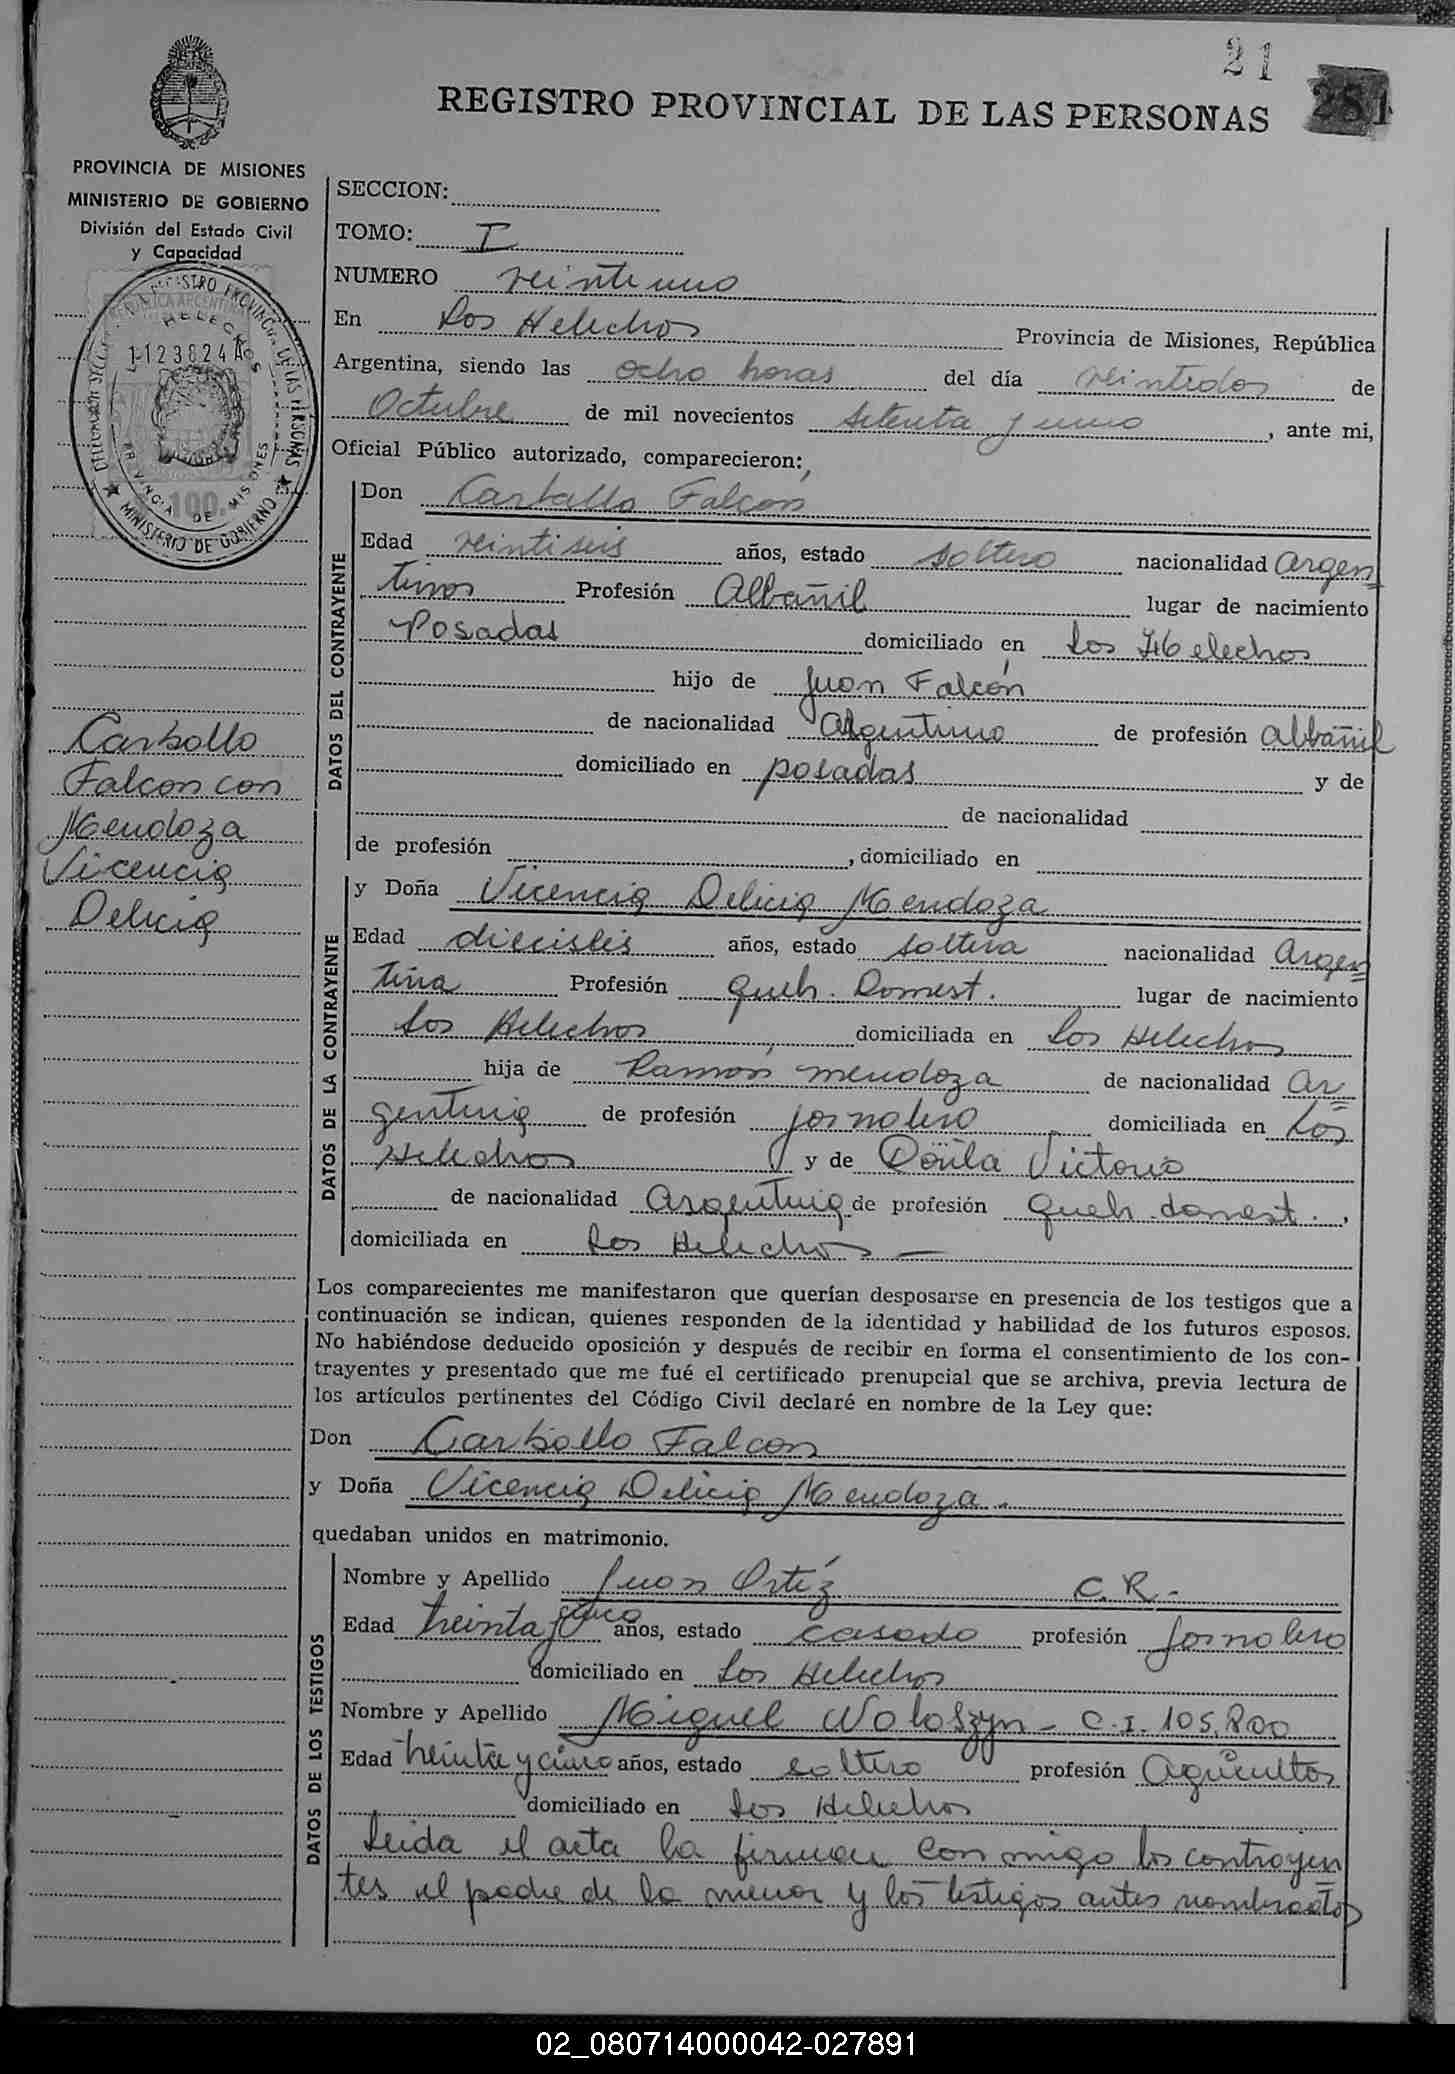 21
281
REGISTRO PROVINCIAL DE LAS PERSONAS
PROVINCIA DE MISIONES
MINISTERIO DE GOBIERNO
División del Estado Civil
y Capacidad
1123824 A
HELECHOS
100.
PROVINCIA DE MISIONES
MINISTERIO DE GOBIERNO
Carbollo
Falcon con
Mendoza
Vicencia
Delicia
SECCION:
TOMO: I
NUMERO veintiuno
En Los Helechos Provincia de Misiones, República
Argentina, siendo las ocho horas del día veintidos de
Octubre de mil novecientos setenta y uno, ante mi,
Oficial Público autorizado, comparecieron:
DATOS DEL CONTRAYENTE
Don Carballo Falcon
Edad veintiseis años, estado soltero nacionalidad Argen
tino Profesión Albañil lugar de nacimiento
Posadas domiciliado en Los Helechos
hijo de Juan Falcón
de nacionalidad Argentino de profesión albañil
domiciliado en posadas y de
de nacionalidad
de profesión , domiciliado en
DATOS DE LA CONTRAYENTE
y Doña Vicencia Delicia Mendoza
Edad dieciseis años, estado soltera nacionalidad Argen
tina Profesión Queh. Domest. lugar de nacimiento
Los Helechos domiciliada en Los Helechos
hija de Ramón Mendoza de nacionalidad Ar
gentina de profesión jornalero domiciliada en Los
Helechos y de Victorio
de nacionalidad Argentina de profesión Queh. domest.,
domiciliada en Los Helechos —
Los comparecientes me manifestaron que querían desposarse en presencia de los testigos que a
continuación se indican, quienes responden de la identidad y habilidad de los futuros esposos.
No habiéndose deducido oposición y después de recibir en forma el consentimiento de los con-
trayentes y presentado que me fué el certificado prenupcial que se archiva, previa lectura de
los artículos pertinentes del Código Civil declaré en nombre de la Ley que:
Don Carbollo Falcon
y Doña Vicencia Delicia Mendoza.
quedaban unidos en matrimonio.
DATOS DE LOS TESTIGOS
Nombre y Apellido Juan Ortíz C.R.-
Edad treinta y cinco años, estado casado profesión Jornalero
domiciliado en Los Helechos
Nombre y Apellido Miguel Woloszyn - C.I. 105.800
Edad treinta y cinco años, estado soltero profesión Agricultor
domiciliado en Los Helechos
Leida el acta la firman con migo los contrayen
tes el padre de la menor y los testigos antes nombrados
02_080714000042-027891